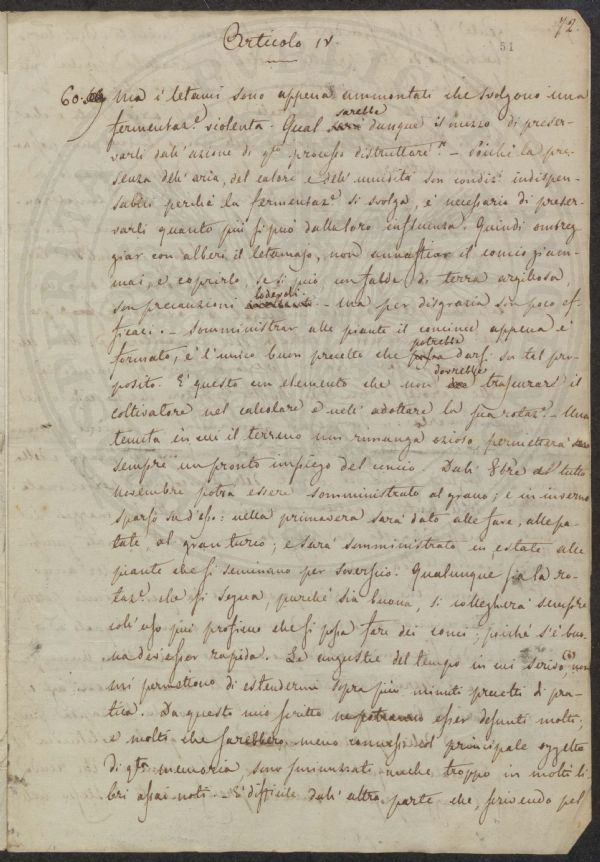 72.
51
Articolo IV.
60. Ma i letami sono appena ammontati che svolgono una
sarebbe
fermentaz.e violenta. Qual sarà dunque il mezzo di preser-
varli dall'azione di q.to processo distruttore? - Poichè la pre-
senza dell'aria, del calore e dell'umidità son condiz.i indispen-
sabili perchè la fermentaz.e si svolga, è necessario di preser-
varli quanto più si può dalla loro influenza. Quindi ombreg-
giar con alberi il letamajo, non annaffiar il concio giam-
mai, e coprirlo, se si può, un falda di terra argillosa,
lodevoli.
son precauzioni - Ma per disgrazia sin poco ef-
ficaci. - Somministrar alle piante il concime appena è
potrebbe
formato, è l'unico buon precetto che possa darsi su tal pro-
dovrebbe
posito. E questo un elemento che non dee trascurare il
coltivatore nel calcolare e nell'adottare la sua rotaz.e - Una
tenuta in cui il terreno non rimanga ozioso, permetterà
sempre un pronto impiego del concio. Dall'8bre al tutto
novembre potrà essere somministrato al grano; e in inverno
sparso su d'esso: nella primavera sarà dato alle fave, alle pa-
tate, al granturco; e sarà somministrato in estate alle
piante che si seminano per sovescio. Qualunque sia la ro-
taz.e che si segua, purchè sia buona, si collegherà sempre
coll'uso più proficuo che si possa fare dei conci; poichè s'è buo-
na dev'esser rapida. Le angustie del tempo in cui scrivo, non
mi permettono di estendermi sopra più minuti precetti di pra-
tica. Da questo mio scritto ne potranno esser desunti molti;
e molti che sarebbero meno connessi col principale oggetto
di q.ta memoria, sono sminuzzati anche troppo in molti li-
bri assai noti. - È difficile dall'altra parte che, scrivendo pel